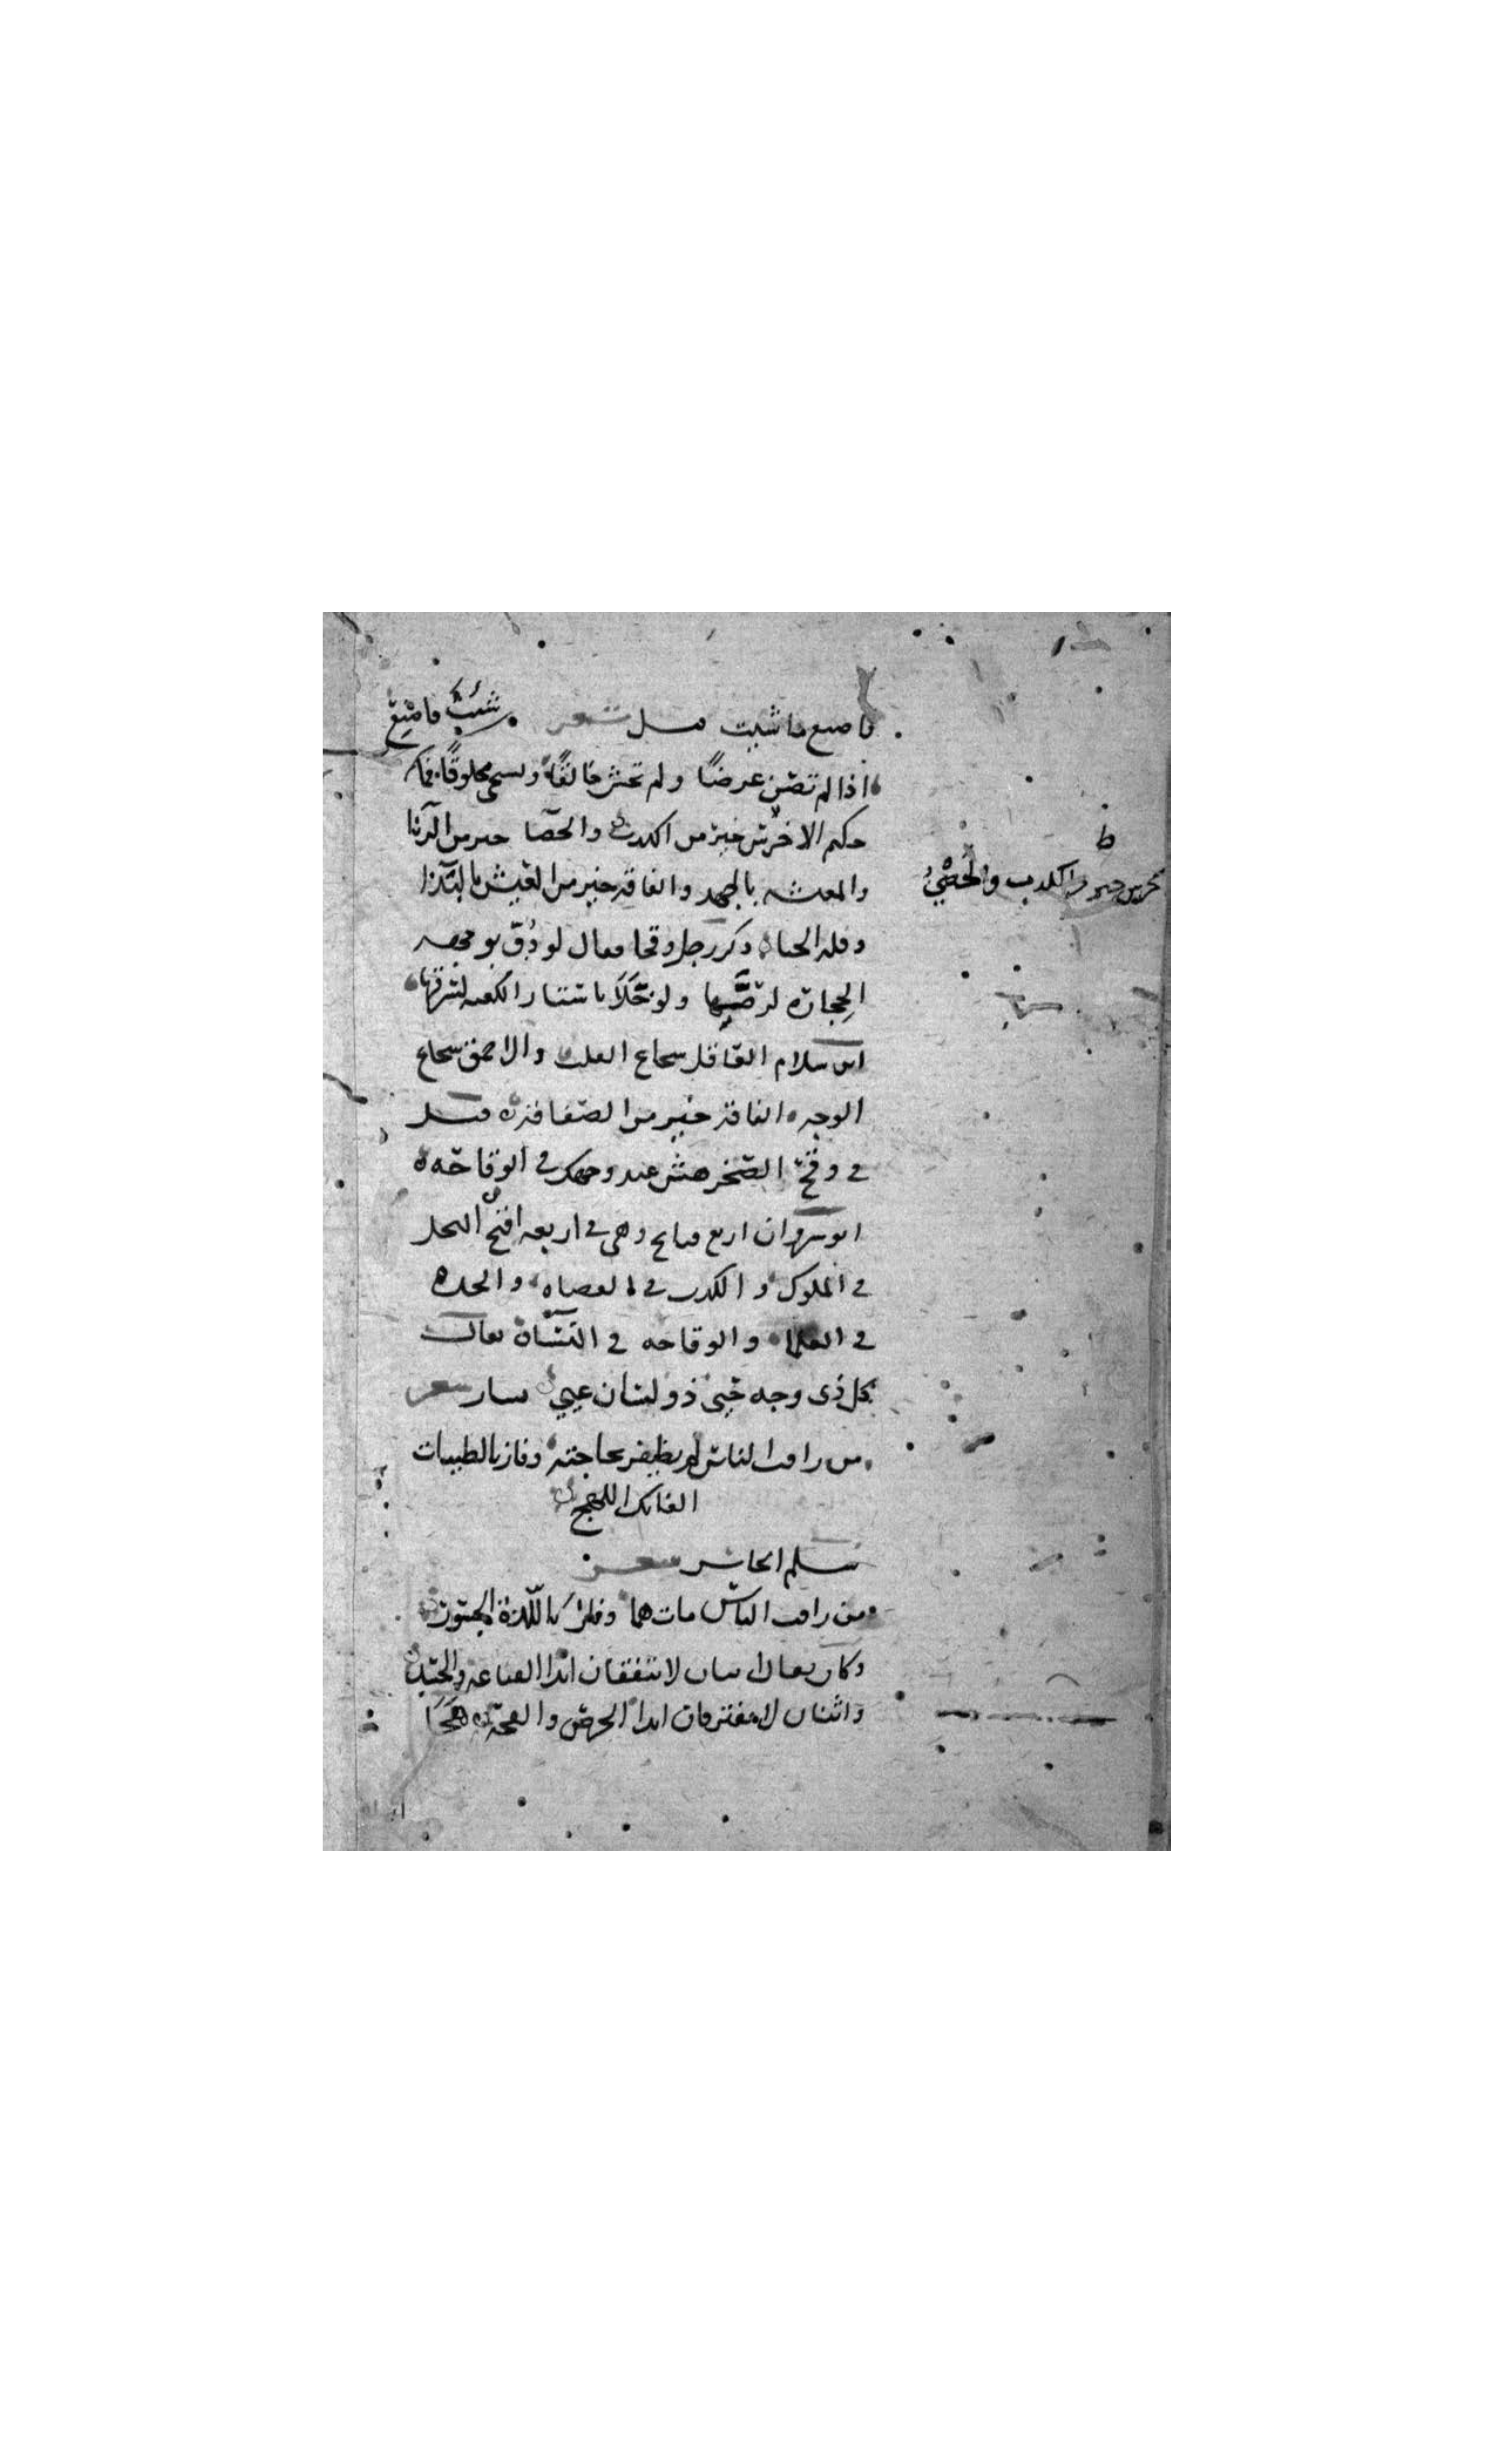 فاصنع ما شيت قيل شعر
شئت فاصنع
اذا لم تصن عرضًا ولم تخش خالقًا وتستحي مخلوقًا فما
حكيم الاخرس خير من الكذب والخصا خير من الزنا
والمعيشه بالجهد والفاقه خير من العيش بالبذا
وقله الحيا وذكر رجل وقحا فقال لو دُقّ بوجهه
الحجاره لرضّها ولو خَلَا باستار الكعبه لسرقها
ابن سلام العاقل شجاع القلب والاحمق شجاع
الوجه الفاقه خير من الصفاقه قيل
في وقح الصخر هش عند وجهك في الوقاحه
انوشروان اربع قبايح وهي في اربعه اقبح البخل
في الملوك والكذب في القضاه والحده
في العلما والوقاحه في النساء يقال
كل ذي وجه حيي ذو لسان عيي بشار شعر
من راقب الناس لم يظفر بحاجته وفاز بالطيبات
الفاتك اللهج
سلم الخاسر شعر
من راقب الناس مات هما وفاز باللذة الجسور
وكان يقال اثنان لا يتفقان ابدا القناعه والحسد
واثنان لا يفترقان ابدا الحرص والقحه
ط
الخرس خير من الكذب والخصيُ